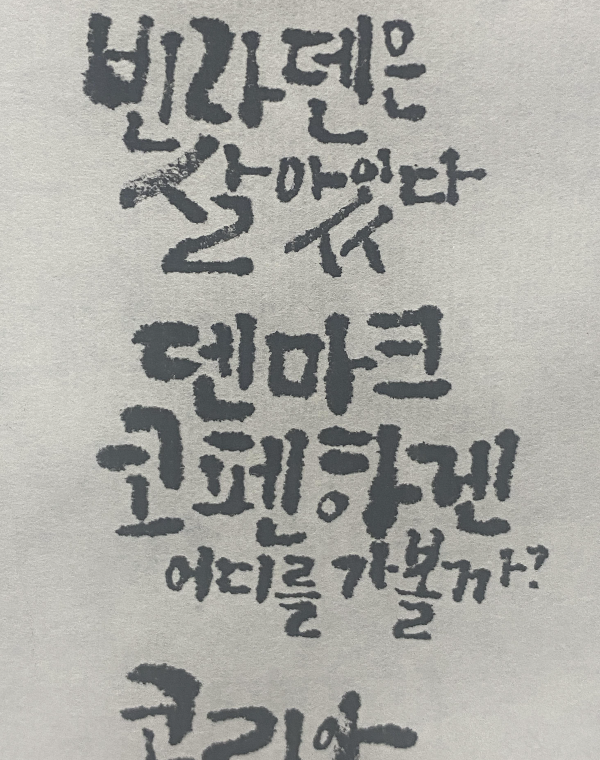 빈라덴은
살아있다
덴마크
코펜하겐
어디를 가볼까?
코리아